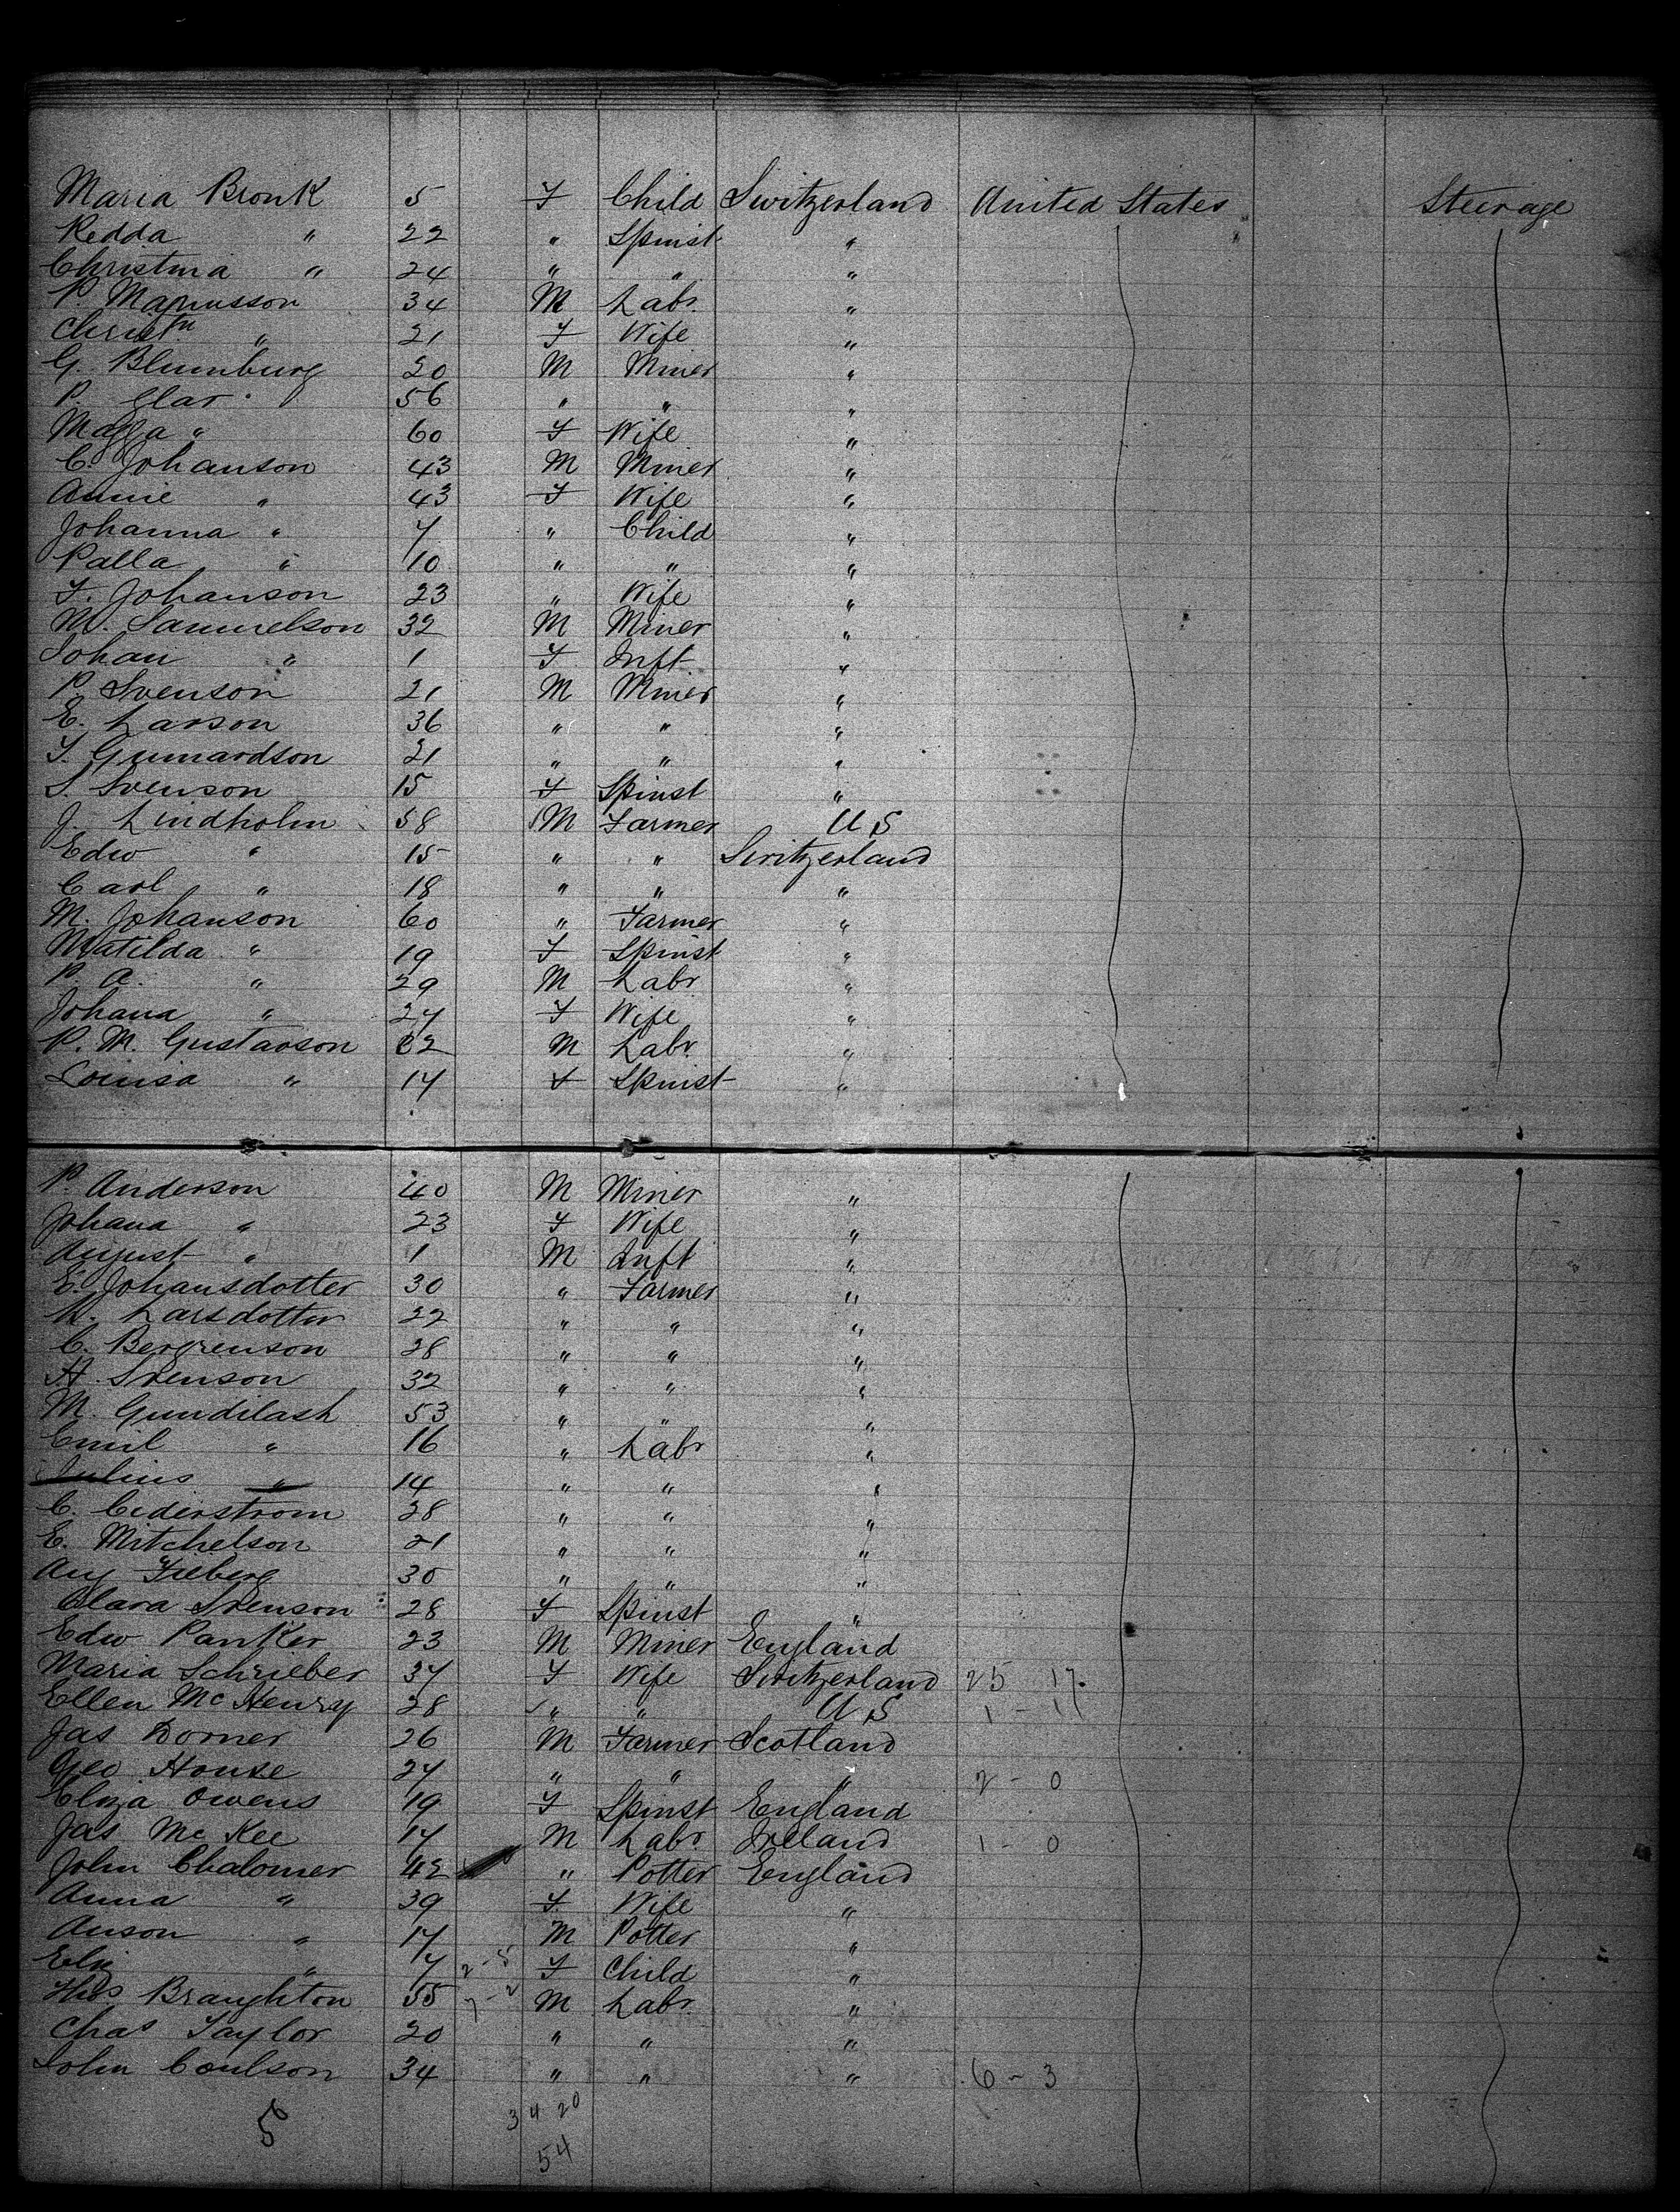 Maria Bronk 5 F Child Switzerland United States Steerage
Kedda " 22 " Spinst "
Christina " 24 " " "
P. Magnusson 34 M Labr. "
Christn " 21 F Wife "
G. Blumburg 20 M Miner "
P. Glar 56 " " "
Magga " 60 F Wife "
C. Johanson 43 M Miner "
Annie " 43 F Wife "
Johanna " 7 " Child "
Palla " 10 " " "
F. Johanson 23 " Wife "
M. Samuelson 32 M Miner "
Johan " 1 F Inft "
P. Svenson 21 M Miner "
E. Larson 36 " " "
F. Gunnardson 21 " " "
S. Svenson 15 F Spinst "
J. Lindholm 58 M Farmer U S
Edw " 15 " " Switzerland
Carl " 18 " " "
M. Johanson 60 " Farmer "
Matilda " 19 F Spinst "
P. A. " 29 M Labr "
Johana " 27 F Wife "
P. M. Gustavson 22 M Labr. "
Louisa " 17 F Spinst "
P. Anderson 40 M Miner "
Johana " 23 F Wife "
August " 1 M Inft "
E. Johansdotter 30 " Farmer "
Larsdotter 22 " " "
C. Bergrenson 28 " " "
A. Svenson 32 " " "
M. Gundilash 53 " " "
Emil " 16 " Labr "
Julius " 14 " " "
C. Cederstrom 28 " " "
E. Mitchelson 21 " " "
Aug Frieberg 30 " " "
Clara Svenson 28 F Spinst "
Edw Panker 23 M Miner England
Maria Schrieber 37 F Wife Switzerland 25 17
Ellen McHenry 28 " " U S 1 - 11
Jas Dorner 26 M Farmer Scotland
Geo House 27 " " " 2 - 0
Eliza Owens 19 F Spinst England
Jas McKee 17 M Labr Ireland 1 - 0
John Chalomer 42 " Potter England
Anna " 39 F Wife "
Anson " 17 M Potter "
Eliz " 7 2 - 5 F Child "
Thos Braughton 55 7 - 2 M Labr. "
Chas Taylor 20 " " "
John Coulson 34 " " " 6 - 3
5 34 20
54